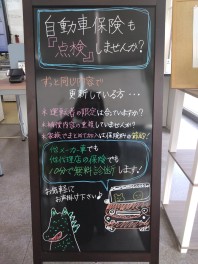 自動車保険も
『点検』しませんか?
ずっと同じ内容で
更新している方・・・
*運転者の限定は合っていますか?
*補償内容の重複していませんか?
*家族でまとめて加入は保険料の節約!
他メーカー車でも
他代理店の保険でも
10分で無料診断します!
お気軽に
お声掛け下さい♪